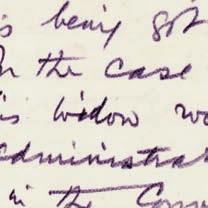 is being got
In the case
his widow
administrat
in the Com